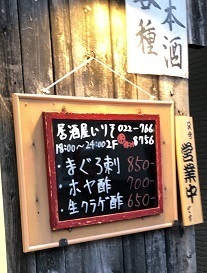 本酒
種
居酒屋いりえ 022-766
18:00〜24:00 2F 8756
・まぐろ刺 850-
・ホヤ酢 700-
・生クラゲ酢 650-
営業中